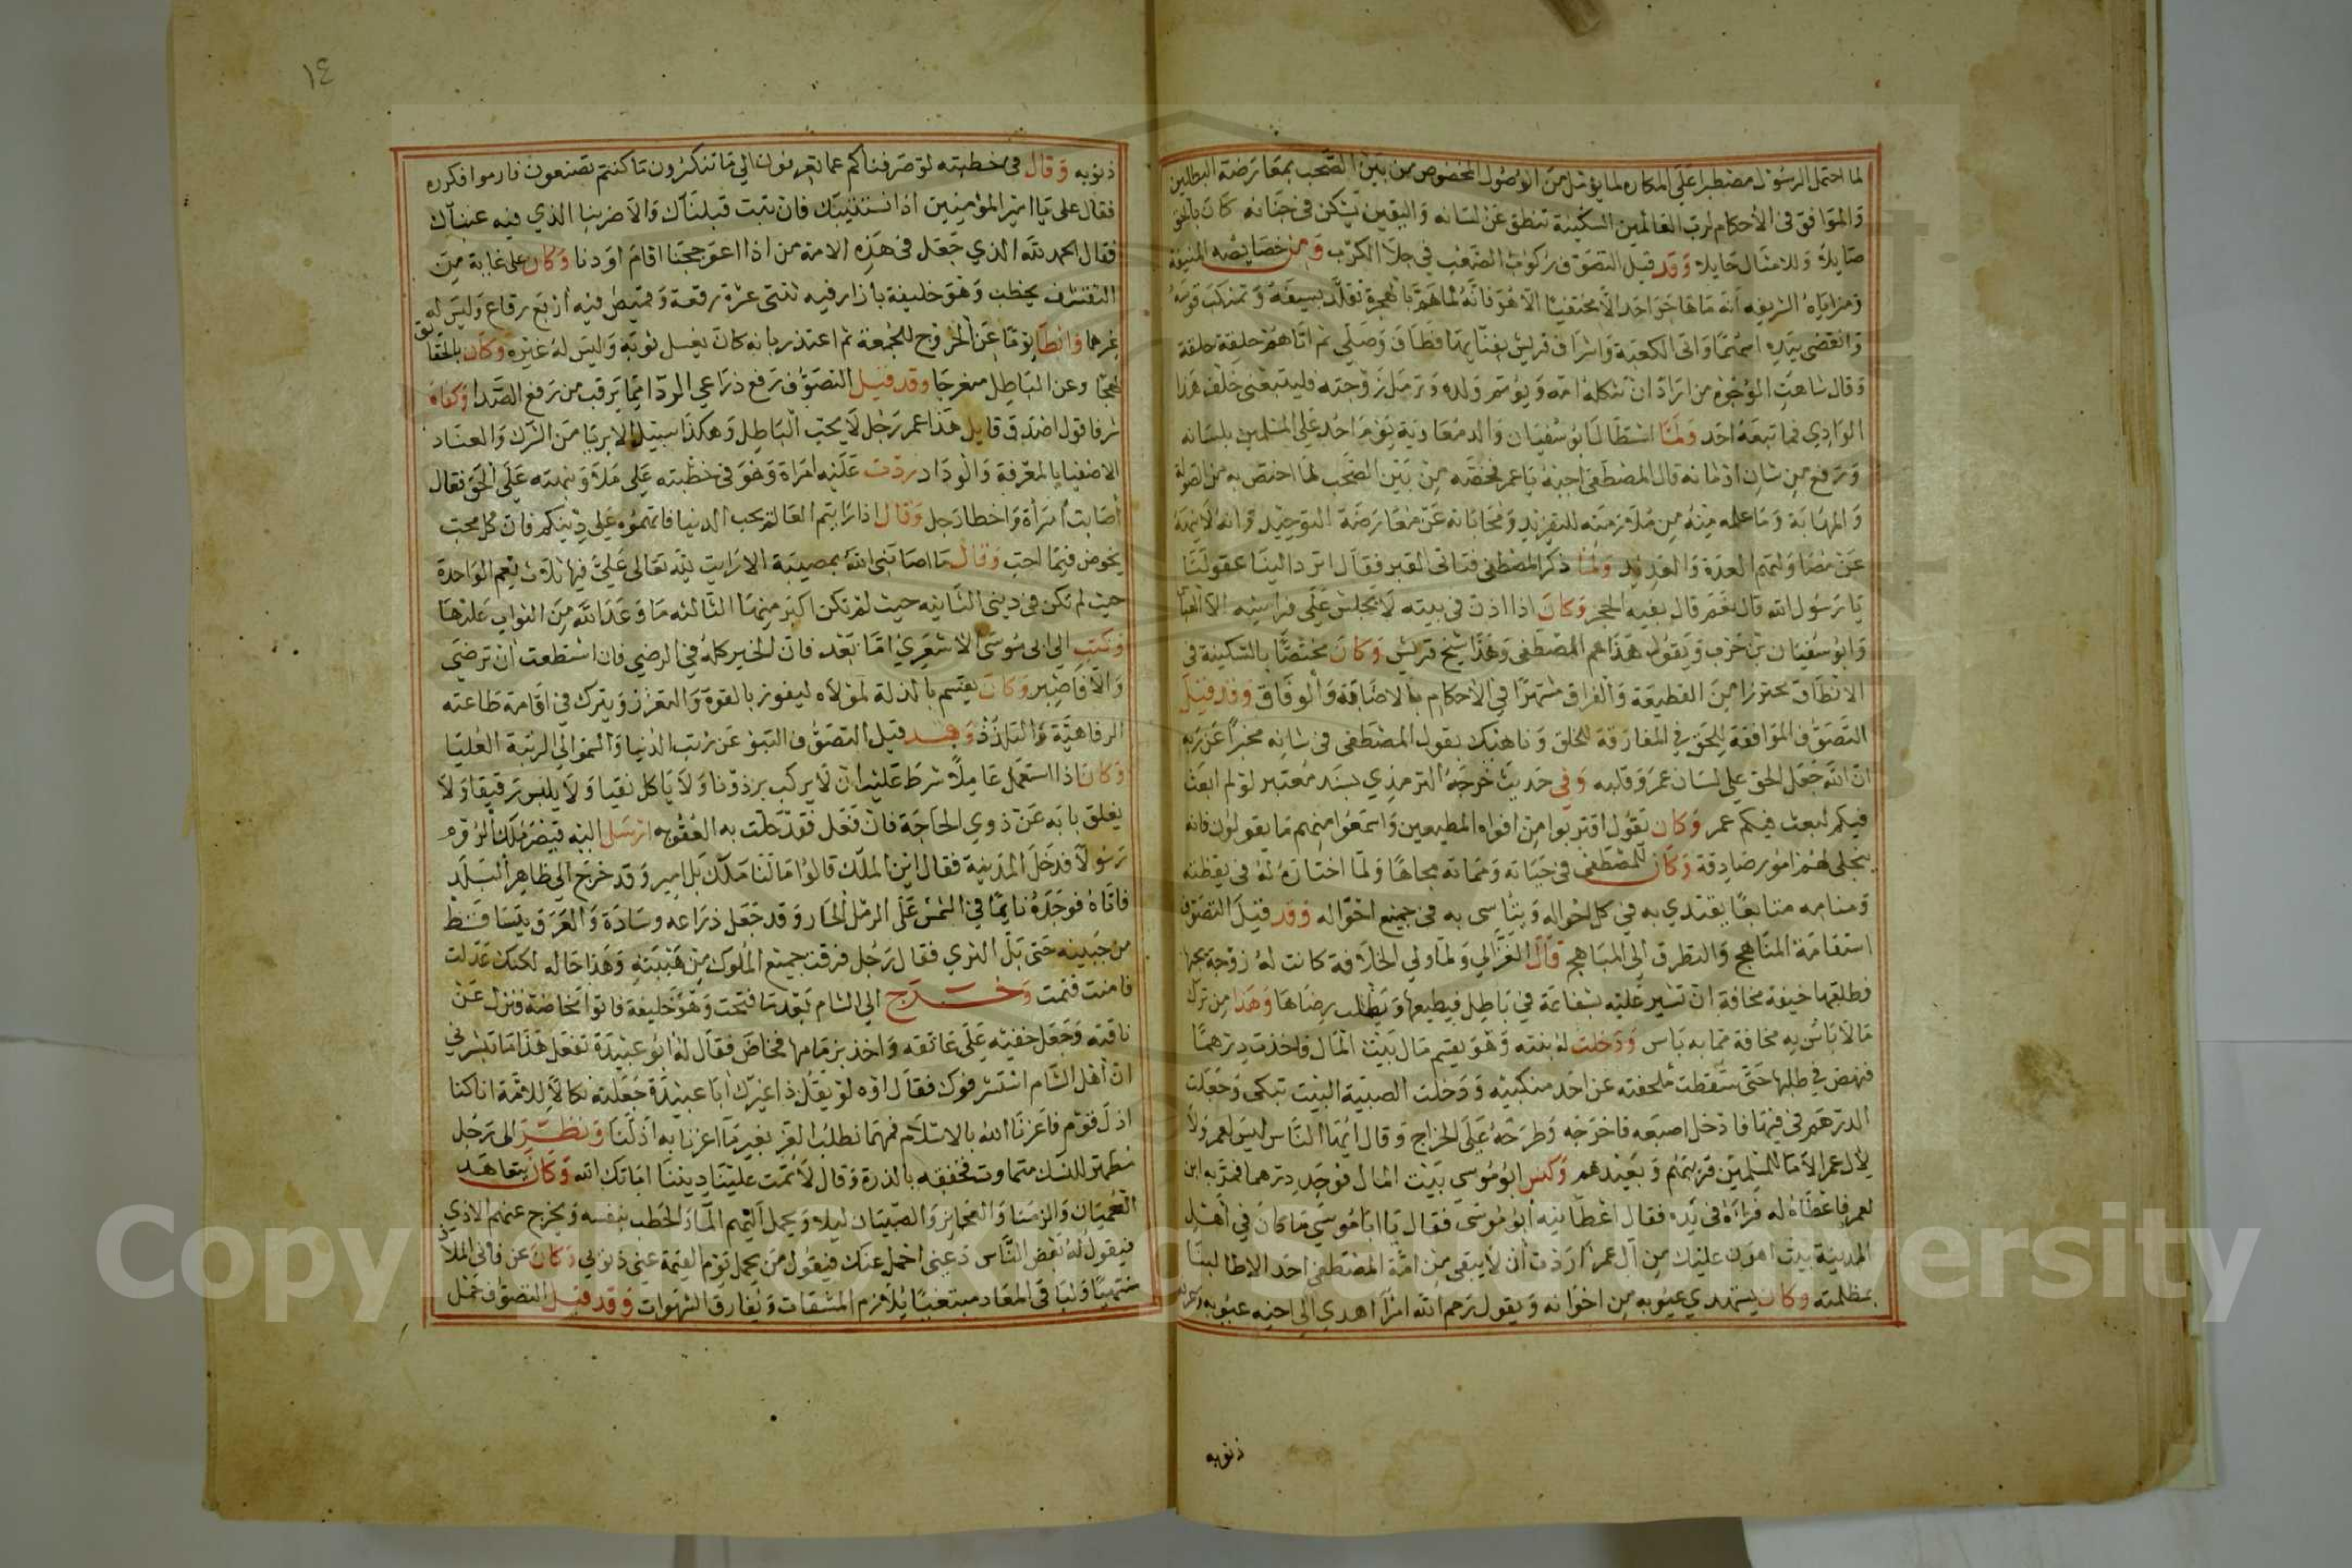 لما احتمل الرسول مصطبرا على المكاره لما يؤمل من الوصول المخصوص من بين الصحب بمعارضة المبطلين
والموافق في الأحكام لرب العالمين السكينة تنطق عن لسانه واليقين يسكن في جنانه كان بالحق
صايلا وللاثقال حايلا وقد قيل التصوف ركوب الصعب في جلا الكرب ومن خصايصه المنيفة
ومزاياه الشريفه أنه ما هاجر احد الا مختفيا الا هو فانه لما هم بالهجرة تقلد بسيفه وتنكب قوسه
وانتضى بيده اسهما واتى الكعبة واشراف قريش بفنايها فطاف وصلى ثم اتاهم حلقة حلقة
وقال شاهت الوجوه من اراد ان تثكله امه ويوتم ولده وترمل زوجته فليتبعني خلف هذا
الوادي فما تبعه احد ولما استطال ابو سفيان والد معاوية يوم احد على المسلمين بلسانه
ورفع من شان اوثانه قال المصطفى اجبه يا عمر فخصه من بين الصحب لما اختص به من الصولة
والمهابة وما علمه منه من ملازمته للتفريد ومحاباته عن معارضة التوحيد وانه لا ينهنهه
عن مصاولتهم العدة والعديد ولما ذكر المصطفى فتاني القبر فقال اترد الينا عقولنا
يا رسول الله قال نعم قال بفيه الحجر وكان اذا اذن في بيته لا يجلس على فراشه الا العباس
وابو سفيان بن حرب ويقول هذا عم المصطفى وهذا شيخ قريش وكان مختصا بالسكينة في
الانطاق محترزا من القطيعة والفراق مشتهرا في الاحكام بالاصابة والوفاق وقد قيل
التصوف الموافقة للحق في المفارقة للخلق وناهيك بقول المصطفى في شانه مخبرا عن ربه
ان الله جعل الحق على لسان عمر وقلبه وفي حديث خرجه الترمذي بسند معتبر لو لم ابعث
فيكم لبعث فيكم عمر وكان يقول اقتربوا من افواه المطيعين واسمعوا منهم ما يقولون فانه
يتجلى لهم امور صادقة وكان للمصطفى في حياته ومماته مجاها ولما اختاره له في يقظته
ومنامه متابعا يقتدي به في كل احواله ويتاسى به في جميع احواله وقد قيل التصوف
استقامة المناهج والتطرق الى المباهج قال الغزالي ولما ولي الخلافة كانت له زوجة يحبها
فطلقها خيفة مخافة ان تشير عليه بشفاعة في باطل فيطيعها ويطلب رضاها وهذا من ترك
ما لا باس به مخافة مما به باس ودخلت له بنته وهو يقسم مال بيت المال فاخذت درهما
فنهض في طلبها حتى سقطت ملحفته عن احد منكبيه ودخلت الصبية البيت تبكي وجعلت
الدرهم في فيها فادخل اصبعه فاخرجه وطرحه على الخراج وقال ايها الناس ليس لعمر ولا
لال عمر الا ما للمسلمين قريبهم وبعيدهم وكنس ابو موسى بيت المال فوجد درهما فمر به ابن
لعمر فاعطاه له فرآه في يده فقال اعطانيه ابو موسى فقال يا ابا موسى ما كان في اهل
المدينة بيت اهون عليك من آل عمر اردت ان لا يبقى من امة المصطفى احد الا طالبنا
بمظلمته وكان يستهدي عيوبه من اخوانه ويقول رحم الله امرا اهدى الى اخيه عيوبه
ذنوبه
١٤
ذنوبه وقال في خطبته لو صرفناكم عما تعرفون الى ما تنكرون ما كنتم تصنعون فارموا فكرره
فقال على يا امير المؤمنين اذا نستتيبك فان تبت قبلناك والا ضربنا الذي فيه عيناك
فقال الحمد لله الذي جعل في هذه الامة من اذا اعوججنا اقام اودنا وكان على غاية من
التقشف يخطب وهو خليفة بازار فيه ثنتى عشرة رقعة وقميص فيه اربع رقاع وليس له
غيرهما وابطا يوما عن الخروج للجمعة ثم اعتذر بانه كان يغسل ثوبه وليس له غيره وكان بالحقايق
لهجا وعن الباطل منعرجا وقد قيل التصوف رفع ذراعي الود اتما يرقب من رفع الصدا وكفاه
شرفا قول اصدق قايل هذا عمر رجل لا يحب الباطل وهكذا سبيل الابريا من الشرك والعناد
الاصفيا بالمعرفة والوداد ردت عليه امراة وهو في خطبته على ملا ونبهته على الحق فقال
أصابت امرأة واخطا رجل وقال اذا رايتم العالم يحب الدنيا فاتهموه على دينكم فان كل محب
يخوض فيما احب وقال ما اصابتني الله بمصيبة الا رايت لله تعالى علي فيها ثلاث نعم الواحدة
حيث لم تكن في ديني الثانيه حيث لم تكن اكبر منها الثالثه ما وعد الله من الثواب عليها
وكتب الى ابي موسى الاشعري اما بعد فان الخير كله في الرضى فان استطعت ان ترضى
والا فاصبر وكان يقسم بالذلة لمولاه ليفوز بالقوة والتعزز ويترك في اقامة طاعته
الرفاهية والتلذذ وقد قيل التصوف النبو عن رتب الدنيا والسمو الى الرتبة العليا
وكان اذا استعمل عاملا شرط عليه ان لا يركب برذونا ولا ياكل نقيا ولا يلبس رقيقا ولا
يغلق بابه عن ذوي الحاجة فان فعل فقد حلت به العقوبه ارسل اليه قيصر ملك الروم
رسولا فدخل المدينة فقال اين الملك قالوا ما لنا ملك بل امير وقد خرج الى ظاهر البلد
فاتاه فوجده نايما في الشمس على الرمل الحار وقد جعل ذراعه وسادة والعرق يتساقط
من جبينه حتى بل الثرى فقال رجل فرقت جميع الملوك من هيبته وهذا حاله لكنك عدلت
فامنت فنمت وخرج الى الشام بعد ما فتحت وهو خليفة فاتوا مخاضة فنزل عن
ناقته وجعل خفيه على عاتقه واخذ بزمامها فخاض فقال له ابو عبيدة تفعل هذا ما يسرني
ان أهل الشام استشرفوك فقال اوه لو يقل ذا غيرك ابا عبيدة جعلته نكالا للامة انا كنا
اذل قوم فاعزنا الله بالاسلام فمهما نطلب العز بغير ما اعزنا به اذلنا ونظر الى رجل
مظهر للنسك متماوت فخفقه بالدرة وقال لا تمت علينا ديننا اماتك الله وكان يتعاهد
العميان والزمنا والعجايز والصبيان ليلا ويحمل اليهم الما والحطب بنفسه ويخرج عنهم الاذى
فيقول له بعض الناس دعني احمل عنك فيقول من يحمل يوم القيمة عني ذنوبي وكان عن فاني الملاذ
منتهيا ولباقي المعاد مبتغيا يلازم المشقات ويفارق الشهوات وقد قيل التصوف حمل
Copyright © King Saud University